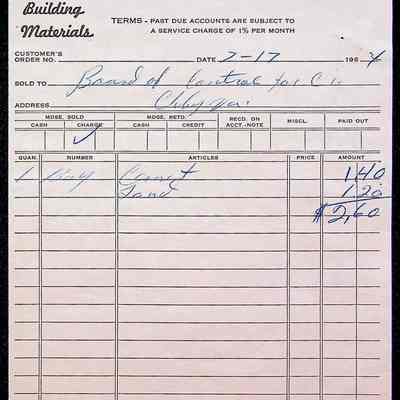 Building
Materials
TERMS - PAST DUE ACCOUNTS ARE SUBJECT TO
A SERVICE CHARGE OF 1% PER MONTH
CUSTOMER'S
ORDER NO. DATE 7-17 1964
SOLD TO Board of Control for C
ADDRESS
MDSE. SOLD MDSE. RETD. RECD. ON ACCT.-NOTE MISCL. PAID OUT
CASH CHARGE CASH CREDIT
✓
QUAN. NUMBER ARTICLES PRICE AMOUNT
1 Bag Cement 1.40
Sand 1.20
$2.60